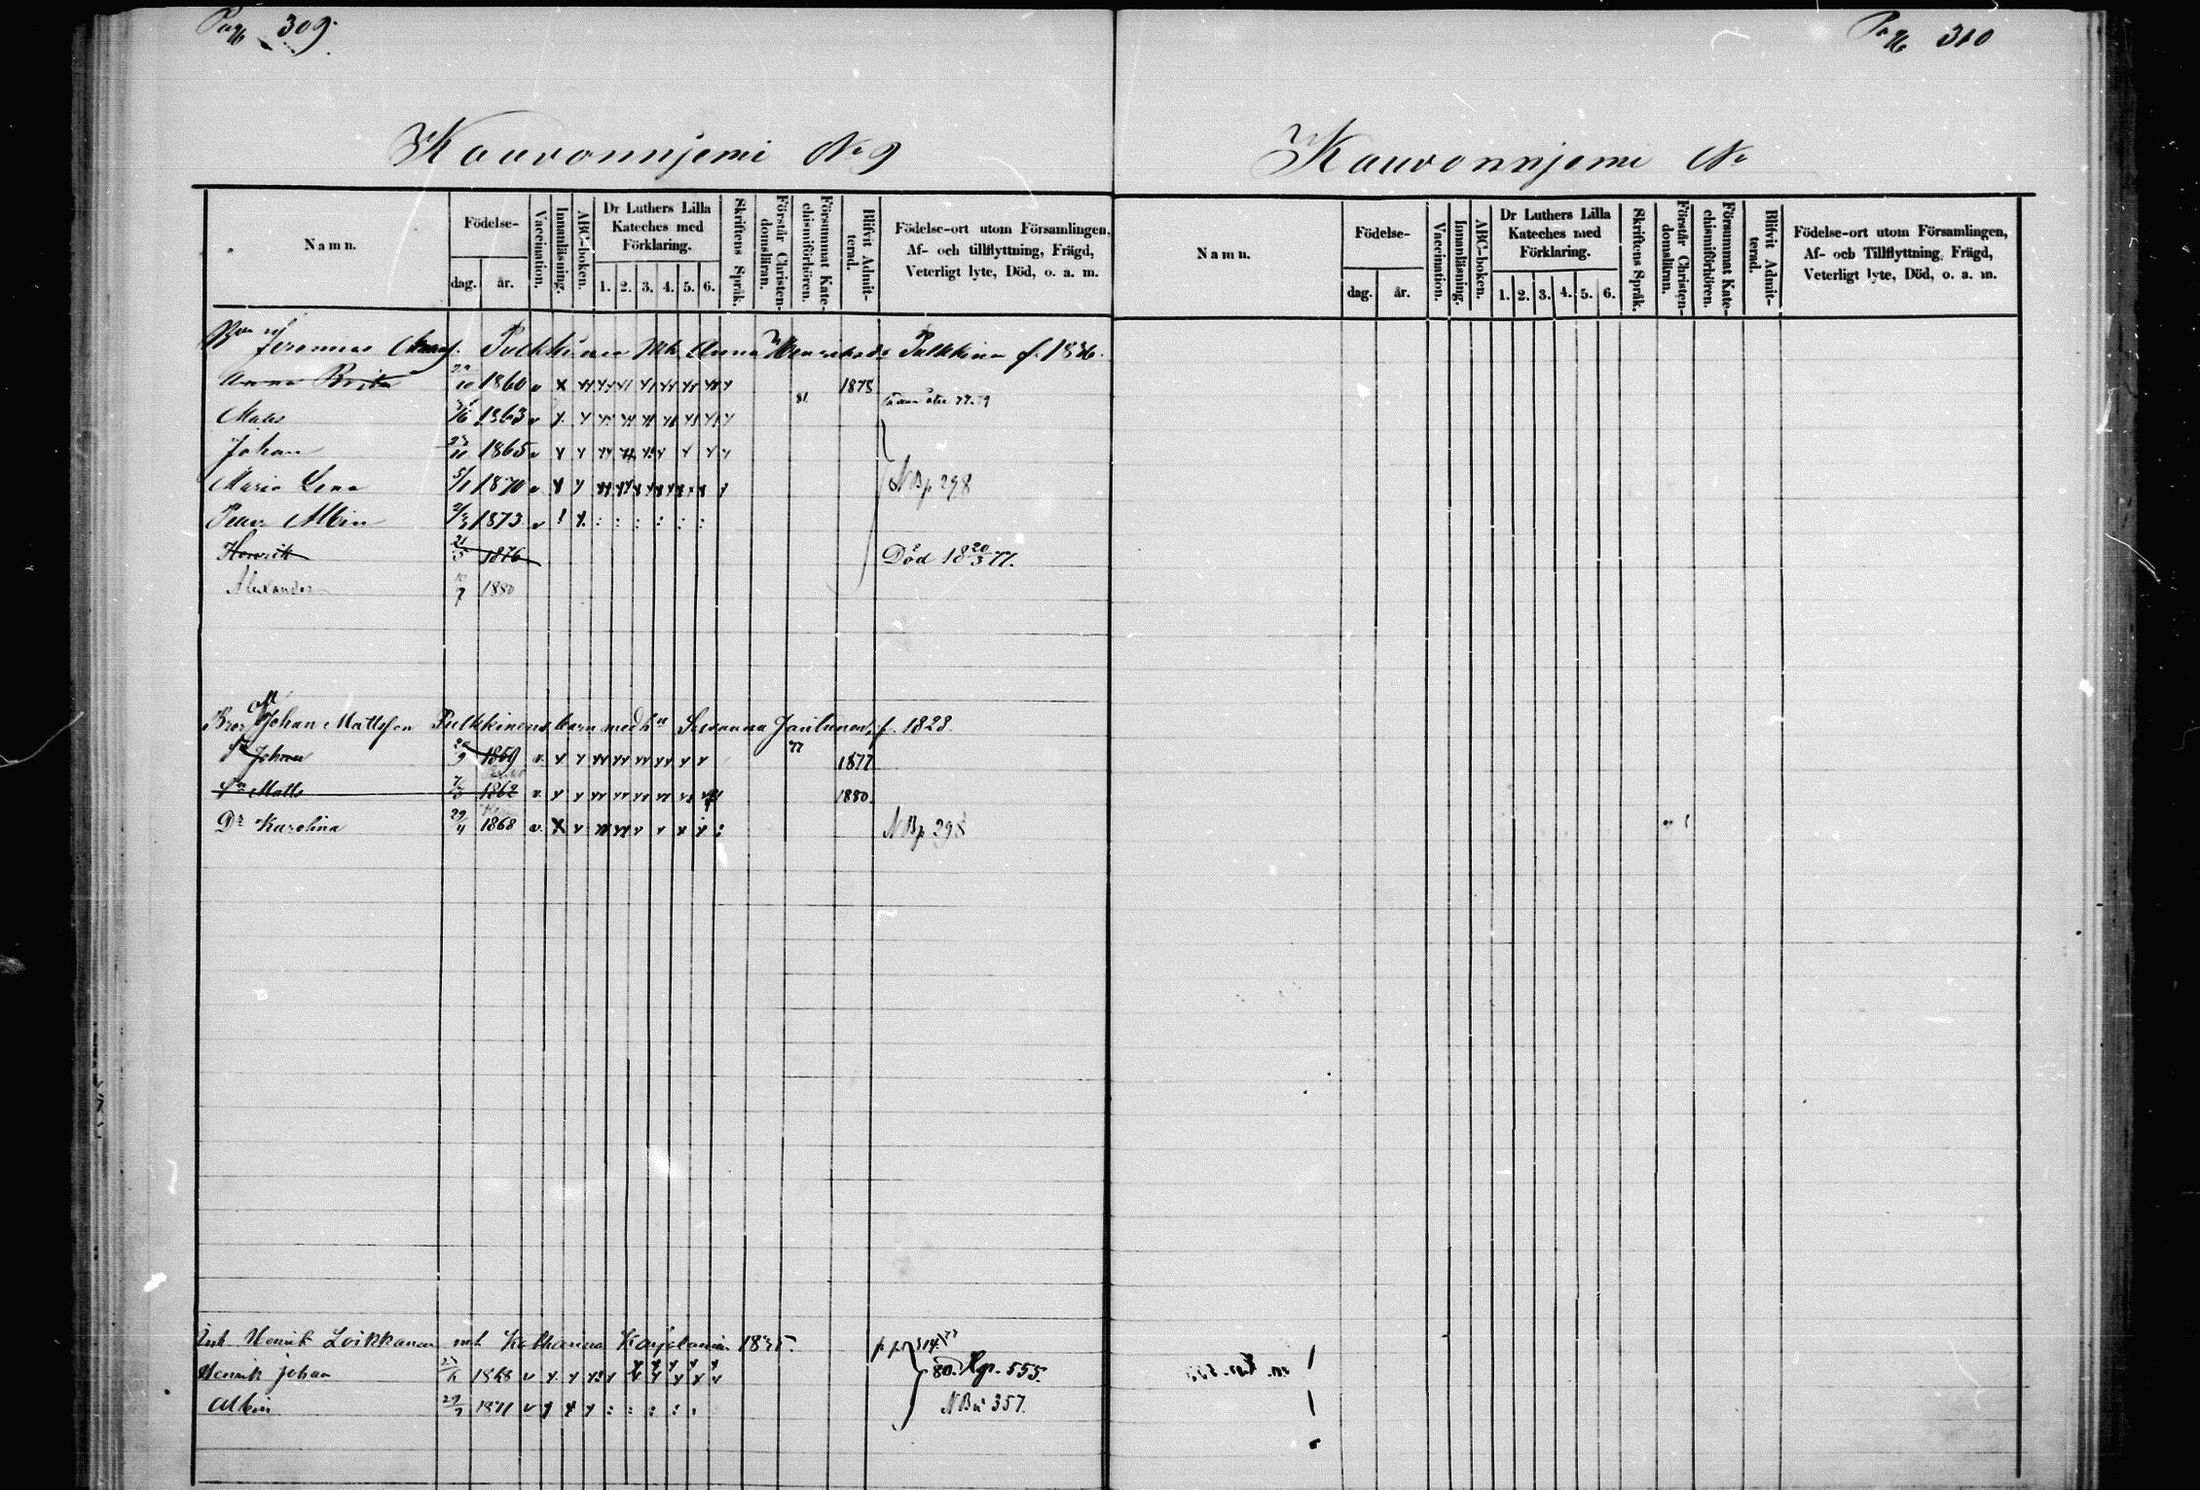 Pag 309.
Kauvonnjemi No 9
Namn.
Födelse-
dag.
år.
Vaccination.
Innanläsning.
ABC-boken.
Dr Luthers Lilla Kateches med Förklaring.
1. 2. 3. 4. 5. 6.
Skriftens Språk.
Förstår Christendomsläran.
Försummat Katechismiförhören.
Blifvit Admitterad.
Födelse-ort utom Församlingen, Af- och tillflyttning, Frägd, Veterligt lyte, Död, o. a. m.
Jeremias Pulkkinen Anna Pulkkinen f. 1836.
Anna Brita 1860 v 1878
Mats 1863 v
Johan 1865 v
Maria Lena 5/1 1870 v NB p 298
Petter Albin 1873 v
Henrik 21/5 1876 Död 18 20/3 77.
Alexander 10/7 1880
Johan Mattsson Pulkkinens barn med hu Susanna f. 1828.
Sn Johan 1859 v. 77 1877
Sn Matts 1862 v. 1880.
Dr Karolina 29/11 1868 v. NB p 298
Henrik Loikkanen Katharina Karjalainen
Henrik Johan 1868 v 80. Kgr. 555.
Albin 29/7 1871 v NB 357.
Pag 310
Kauvonnjemi No
Namn.
Födelse-
dag.
år.
Vaccination.
Innanläsning.
ABC-boken.
Dr Luthers Lilla Kateches med Förklaring.
1. 2. 3. 4. 5. 6.
Skriftens Språk.
Förstår Christendomsläran.
Försummat Katechismiförhören.
Blifvit Admitterad.
Födelse-ort utom Församlingen, Af- och Tillflyttning, Frägd, Veterligt lyte, Död, o. a. m.